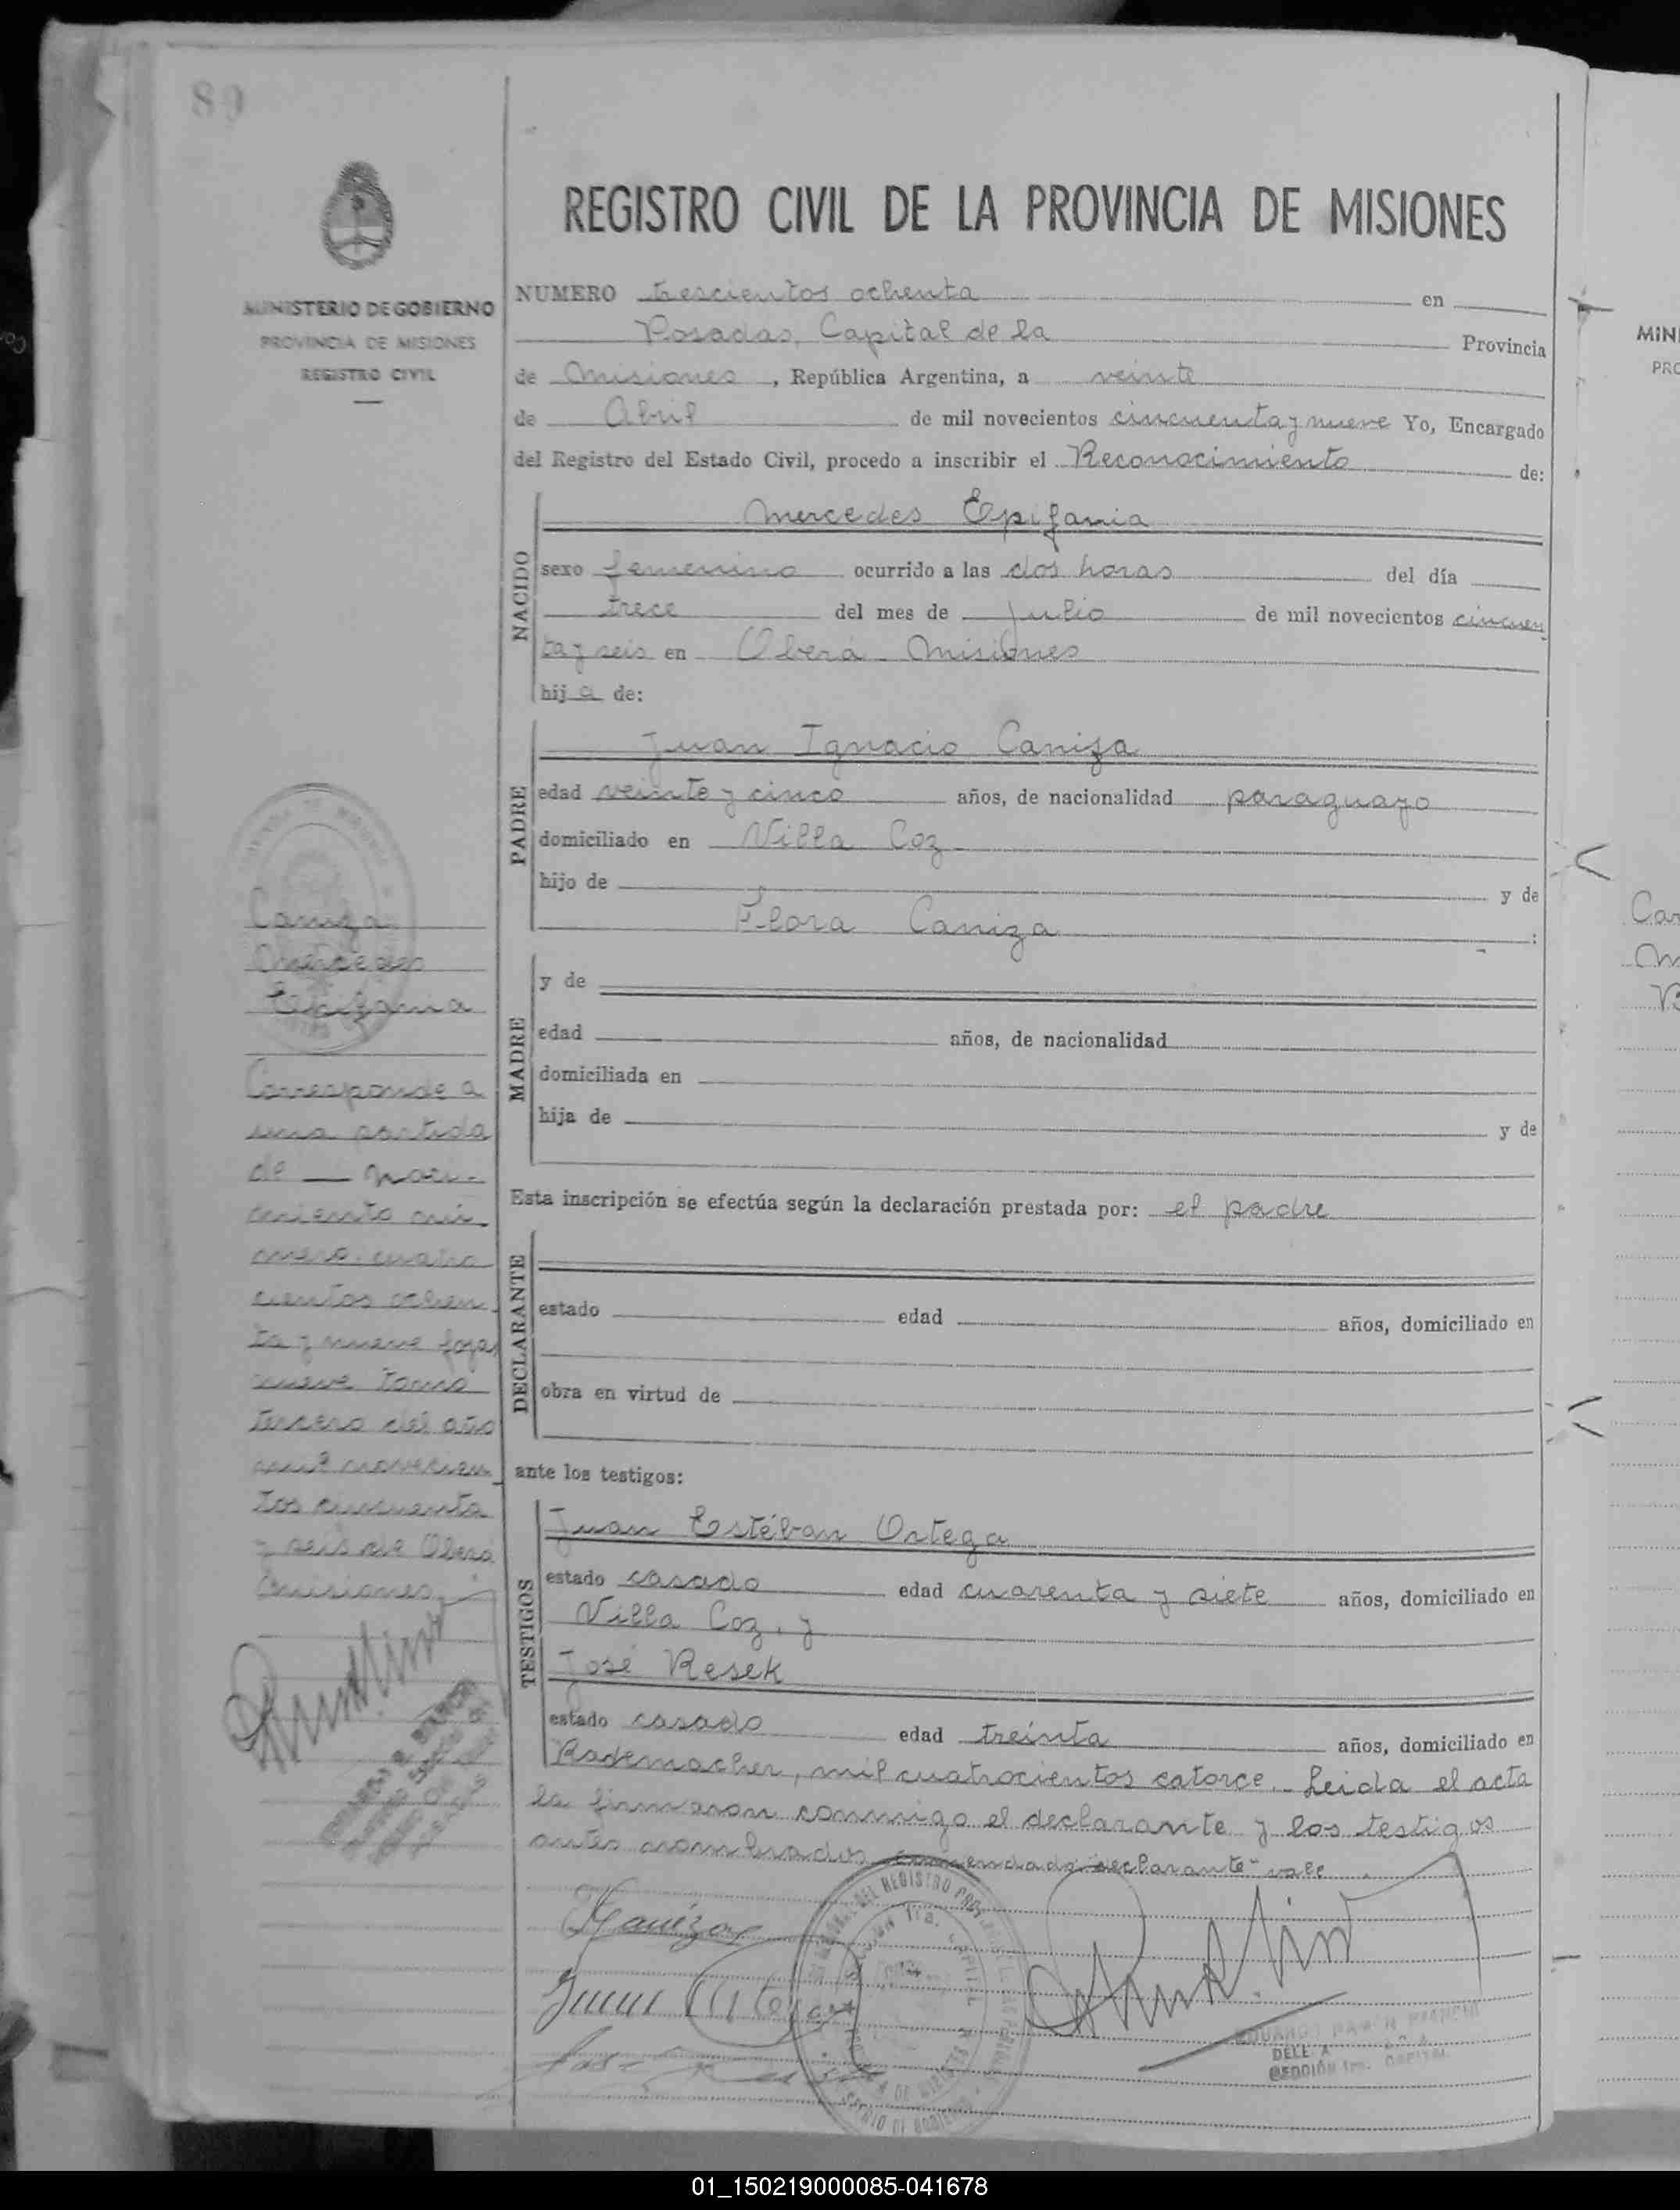 89
REGISTRO CIVIL DE LA PROVINCIA DE MISIONES
MINISTERIO DE GOBIERNO
PROVINCIA DE MISIONES
REGISTRO CIVIL
NUMERO trescientos ochenta en
Posadas, Capital de la Provincia
de Misiones, República Argentina, a veinte
de Abril de mil novecientos cincuenta y nueve Yo, Encargado
del Registro del Estado Civil, procedo a inscribir el Reconocimiento de:
NACIDO
Mercedes Epifania
sexo femenino ocurrido a las dos horas del día
trece del mes de Julio de mil novecientos cincuen
ta y seis en Oberá Misiones
hija de:
PADRE
Juan Ignacio Caniza
edad veinte y cinco años, de nacionalidad paraguayo
domiciliado en Villa Coz
hijo de y de
Flora Caniza :
MADRE
y de
edad años, de nacionalidad
domiciliada en
hija de y de
Esta inscripción se efectúa según la declaración prestada por: el padre
DECLARANTE
estado edad años, domiciliado en
obra en virtud de
ante los testigos:
TESTIGOS
Juan Estéban Ortega
estado casado edad cuarenta y siete años, domiciliado en
Villa Coz, y
José Resek
estado casado edad treinta años, domiciliado en
Rademacher, mil cuatrocientos catorce. Leida el acta
la firmaron conmigo el declarante y los testigos
antes nombrados enmendado declarante - vale
Caniza
Mercedes
Epifania
Corresponde a
una partida
de — naci-
miento nú-
mero cuatro
cientos ochen
ta y nueve foja
nueve tomo
tercero del año
mil novecien
tos cincuenta
y seis de Oberá
Misiones
SECCIÓN 1ra. CAPITAL
MIN
PRO
Can
01_150219000085-041678